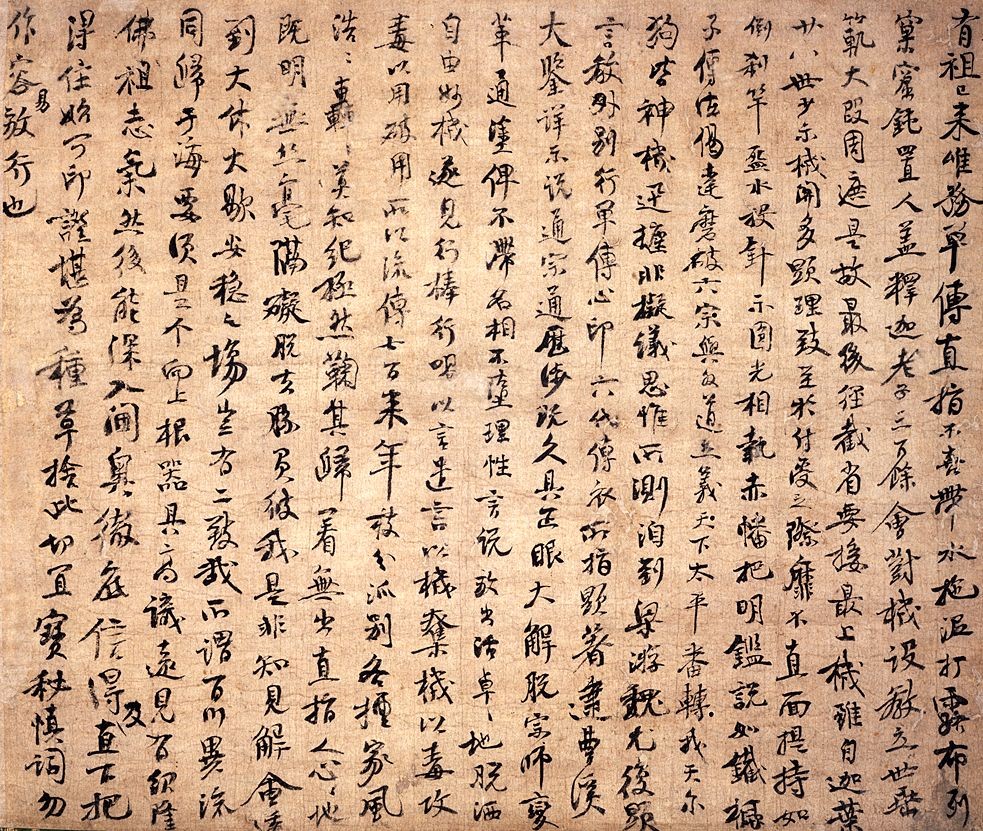 有祖已来唯務單傳直指不喜帶水拖泥打露布列
窠窟鈍置人蓋釋迦老子三百餘會對機設教立世垂
範大段周遮是故最後徑截省要接最上機雖自迦葉
廿八世少示機關多顯理致至於付受之際靡不直面提持如
倒刹竿盋水投針示圓光相執赤幡把明鑑説如鐵橛
子傳法偈達磨破六宗與外道立義天下太平番轉我天尒
狗皆神機迅捷非擬議思惟所測洎到梁游魏尤復顯
言教外別行單傳心印六代傳衣所指顯著逮曹溪
大鑒詳示説通宗通歴涉既久具正眼大解脱宗師變
革通塗俾不滯名相不墮理性言説放出活卓〻地脱洒
自由妙機遂見行棒行喝以言遣言以機奪機以毒攻
毒以用破用所以流傳七百来年枝分派別各擅家風
浩〻轟〻莫知紀極然鞠其歸著無出直指人心〻地
既明無絲毫隔礙脱去勝負彼我是非知見解會透
到大休大歇安穩之場豈有二致哉所謂百川異流
同歸于海要須是个向上根器具高識遠見有紹隆
佛祖志氣然後能深入閫奧徹底信得及直下把
得住始可印證堪為種草捨此切宜寶秘慎詞勿
作容易放行也